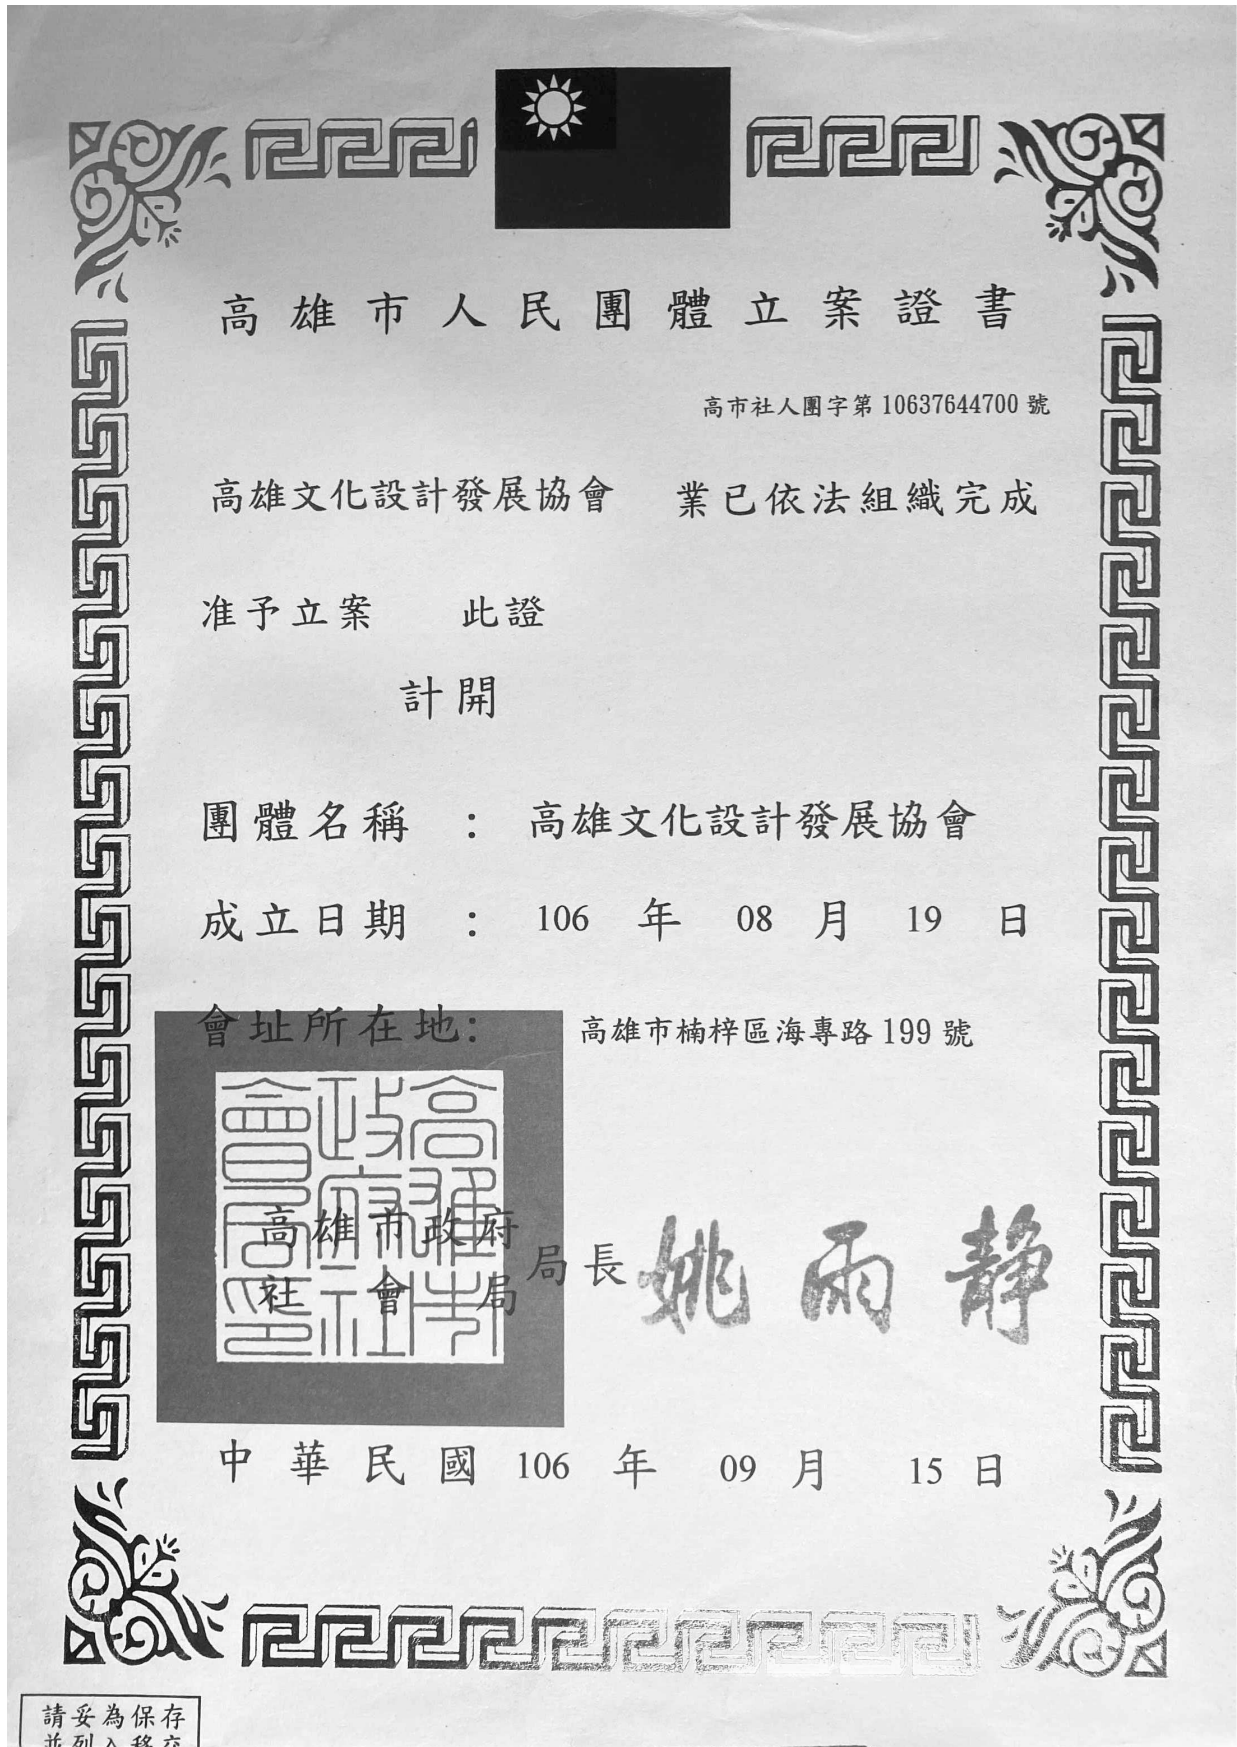 高雄市人民團體立案證書
高市社人團字第10637644700號
高雄文化設計發展協會 業已依法組織完成
准予立案 此證
計開
團體名稱 : 高雄文化設計發展協會
成立日期 : 106 年 08 月 19 日
會址所在地: 高雄市楠梓區海專路199號
高雄市政府社會局印
高雄市政府
社會局
局長 姚雨靜
中華民國 106 年 09 月 15 日
請妥為保存
並列入移交